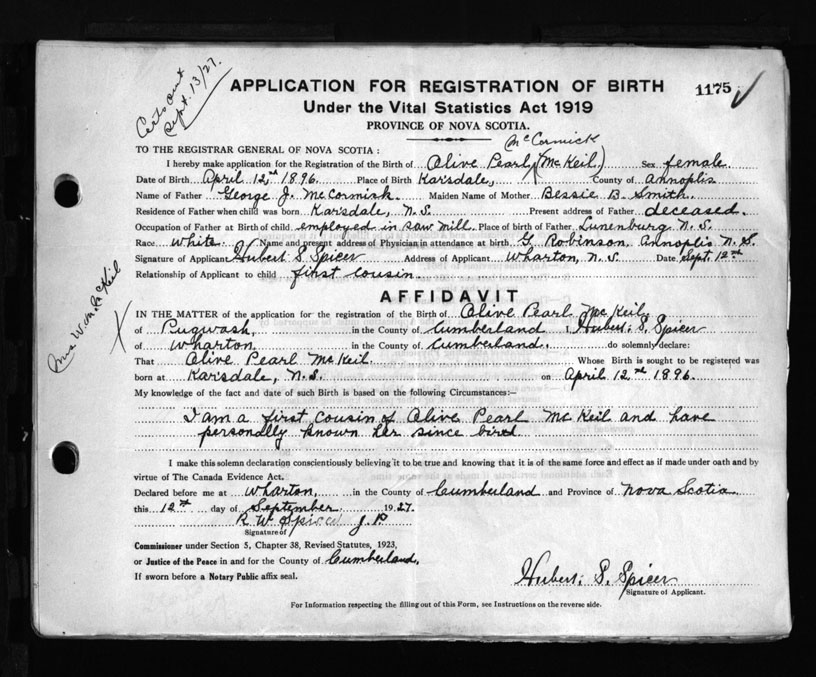 Certs out
Sept. 13/27.
APPLICATION FOR REGISTRATION OF BIRTH
1175
Under the Vital Statistics Act 1919
PROVINCE OF NOVA SCOTIA.
McCormick
TO THE REGISTRAR GENERAL OF NOVA SCOTIA :
I hereby make application for the Registration of the Birth of Alive Pearl (McKeil) Sex female
Date of Birth April 12, 1896. Place of Birth Karsdale, County of Annoplis
Name of Father George J. McCormick. Maiden Name of Mother Bessie B. Smith.
Residence of Father when child was born Karsdale, N.S. Present address of Father deceased.
Occupation of Father at Birth of child employed in saw mill. Place of birth of Father Lunenburg N.S.
Race White Name and present address of Physician in attendance at birth G. Robinson Annoplis N.S.
Signature of Applicant Hubert S Spicer Address of Applicant Wharton, N.S. Date Sept. 12th
Relationship of Applicant to child first cousin.
W. McKeil
AFFIDAVIT
IN THE MATTER of the application for the registration of the Birth of Alive Pearl McKeil
of Pugwash, in the County of Cumberland I, Hubert S. Spicer
of Wharton, in the County of Cumberland. do solemnly declare:
That Alive Pearl McKeil Whose Birth is sought to be registered was
born at Karsdale, N.S. on April 12 1896.
My knowledge of the fact and date of such Birth is based on the following Circumstances:—
I am a first cousin of Alive Pearl McKeil and have
personally known her since birth
I make this solemn declaration conscientiously believing it to be true and knowing that it is of the same force and effect as if made under oath and by
virtue of The Canada Evidence Act.
Declared before me at Wharton, in the County of Cumberland and Province of Nova Scotia.
this 12th day of September 1927.
R W Spicer J.P.
Signature of
Commissioner under Section 5, Chapter 38, Revised Statutes, 1923,
or Justice of the Peace in and for the County of Cumberland,
If sworn before a Notary Public affix seal.
Hubert S. Spicer
Signature of Applicant.
For Information respecting the filling out of this Form, see Instructions on the reverse side.